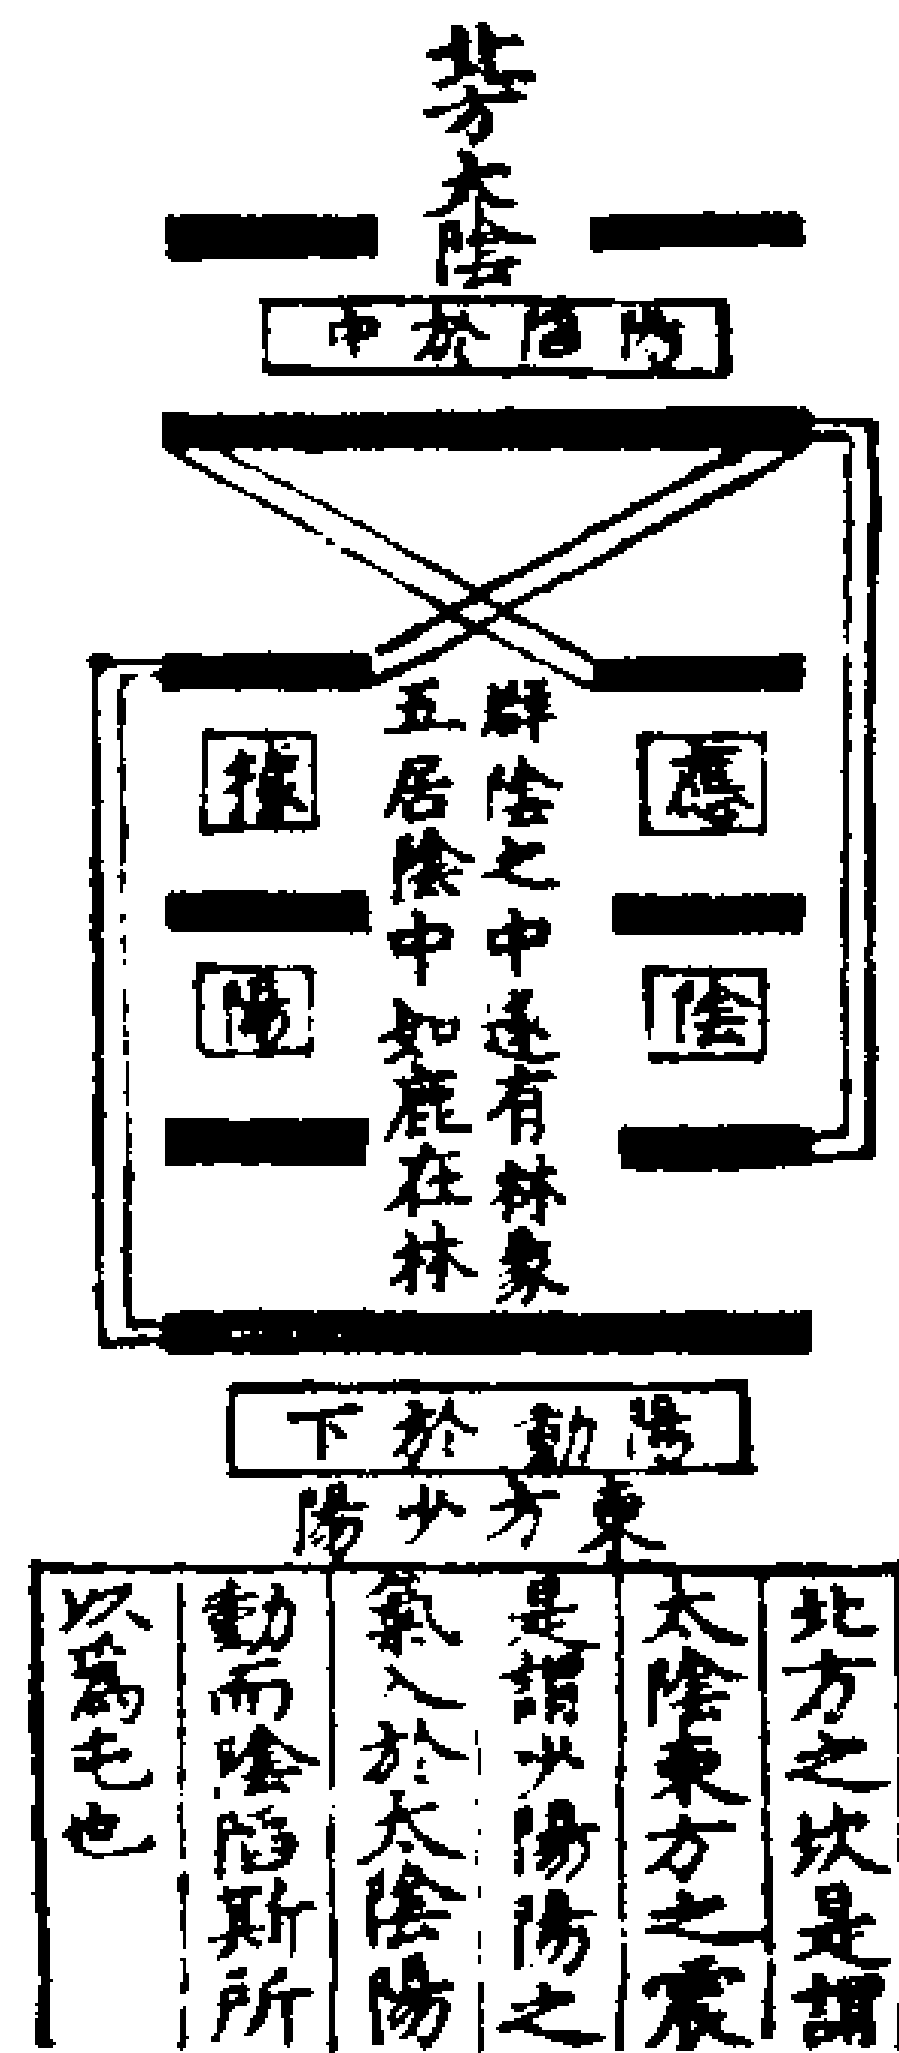 北方太陰
陽陷於中
群陰之中遂有林象
五居陰中如鹿在林
應
據
陰
陽
陽動於下
東方少陽
北方之坎是謂
太陰東方之震
是謂少陽陽之
氣入於太陰陽
動而陰陷斯所
以為屯也